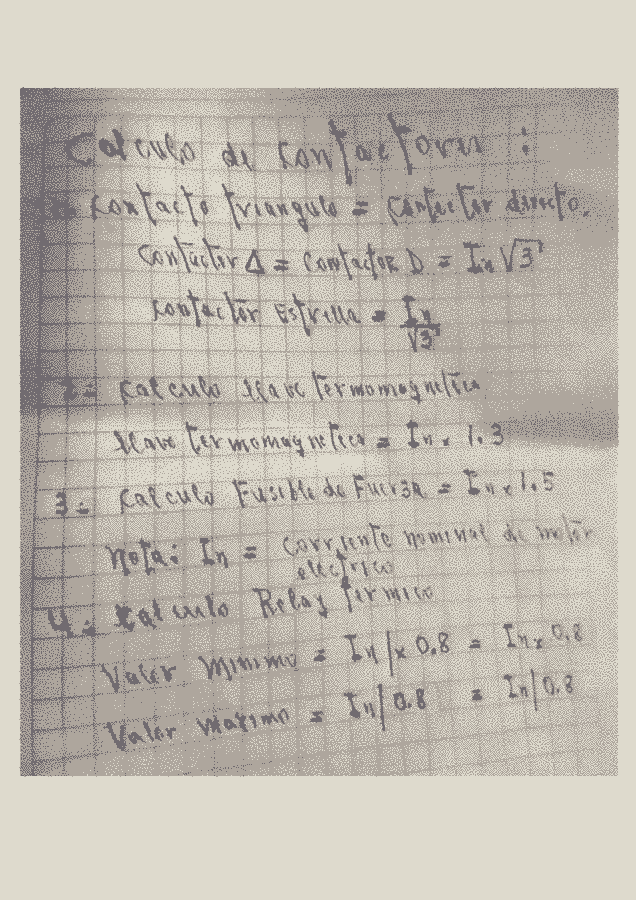 Calculo de Contactores :
Contacto triangulo = Contactor directo.
Contactor Δ = Contactor D = In √3
Contactor Estrella = In
√3
2= Calculo llave termomagnetica
llave termomagnetica = In x 1.3
3= Calculo Fusible de Fuerza = In x 1.5
Nota: In = Corriente nominal de motor
electrico
4= Calculo Relay termico
Valor Minimo = In | x 0.8 = In x 0.8
Valor maximo = In | 0.8 = In | 0.8